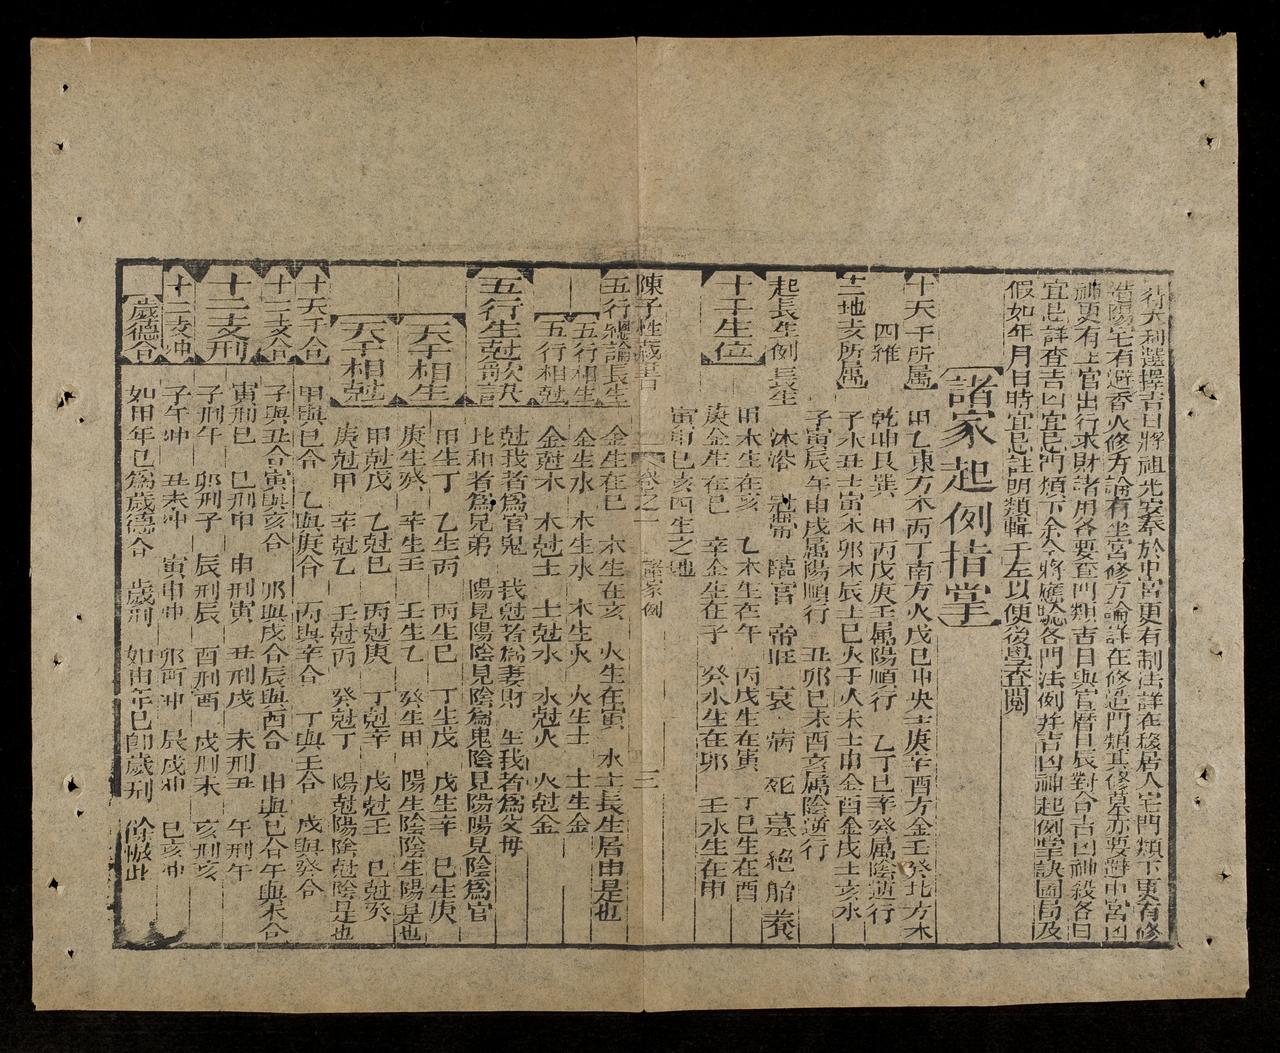 行大利選擇吉日將祖先安奉於中宮更有制法詳在移居入宅門類下更有修
造陽宅有避香火修方論有坐宮修方論詳在修造門類其修墓亦要避中宮凶
神更有上官出行求財諸用各要查門類吉日與官曆日辰對合吉凶神殺各日
宜忌詳查吉凶宜忌門類下余今將應驗各門法例并吉凶神起例掌訣圖局及
假如年月日時宜忌註明類輯于左以便後學查閱
諸家起例指掌
十天干所屬 甲乙東方木丙丁南方火戊己中央土庚辛酉方金壬癸北方水
四維 乾坤艮巽 甲丙戊庚壬屬陽順行 乙丁己辛癸屬陰逆行
十二地支所屬 子水丑土寅木卯木辰土巳火午火未土申金酉金戌土亥水
子寅辰午申戌屬陽順行 丑卯巳未酉亥屬陰逆行
起長生例 長生 沐浴 冠帶 臨官 帝旺 衰 病 死 墓 絕 胎 養
十干生位 甲木生在亥 乙木生在午 丙戊生在寅 丁巳生在酉
庚金生在巳 辛金生在子 癸水生在卯 壬水生在申
寅申巳亥四生之地
陳子性藏書 卷之一 諸家例 三
五行總論長生 金生在巳 木生在亥 火生在寅 水土長生居申是也
五行相生 金生水 水生木 木生火 火生土 土生金
五行相尅 金尅木 木尅土 土尅水 水尅火 火尅金
五行生尅歌訣 尅我者爲官鬼 我尅者爲妻財 生我者爲父母
比和者爲兄弟 陽見陽陰見陰爲鬼陰見陽陽見陰爲官
天干相生 甲生丁 乙生丙 丙生巳 丁生戊 戊生辛 巳生庚
庚生癸 辛生壬 壬生乙 癸生甲 陽生陰陰生陽是也
天干相尅 甲尅戊 乙尅巳 丙尅庚 丁尅辛 戊尅壬 巳尅癸
庚尅甲 辛尅乙 壬尅丙 癸尅丁 陽尅陽陰尅陰是也
十天干合 甲與巳合 乙與庚合 丙與辛合 丁與壬合 戊與癸合
十二支合 子與丑合寅與亥合 卯與戌合辰與酉合 申與巳合午與未合
十二支刑 寅刑巳 巳刑申 申刑寅 丑刑戌 未刑丑 午刑午
子刑午 卯刑子 辰刑辰 酉刑酉 戌刑未 亥刑亥
十二支冲 子午冲 丑未冲 寅申冲 卯酉冲 辰戌冲 巳亥冲
歲德合 如甲年巳爲歲德合 歲刑 如申年巳卽歲刑 餘倣此